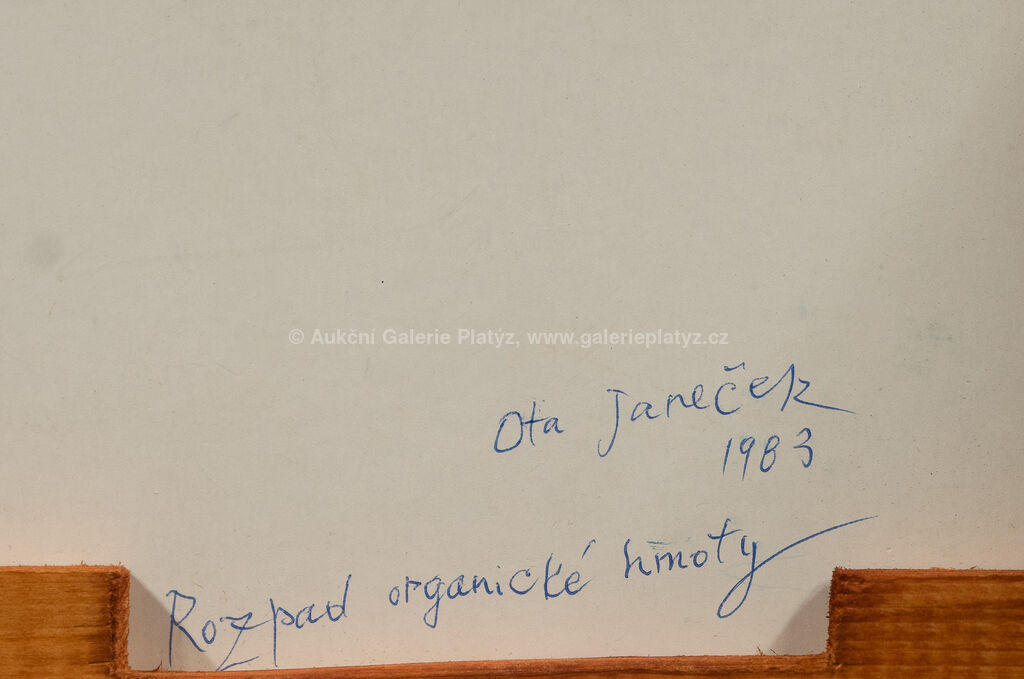 © Aukční Galerie Platýz, www.galerieplatyz.cz
Ota Janeček
1983
Rozpad organické hmoty